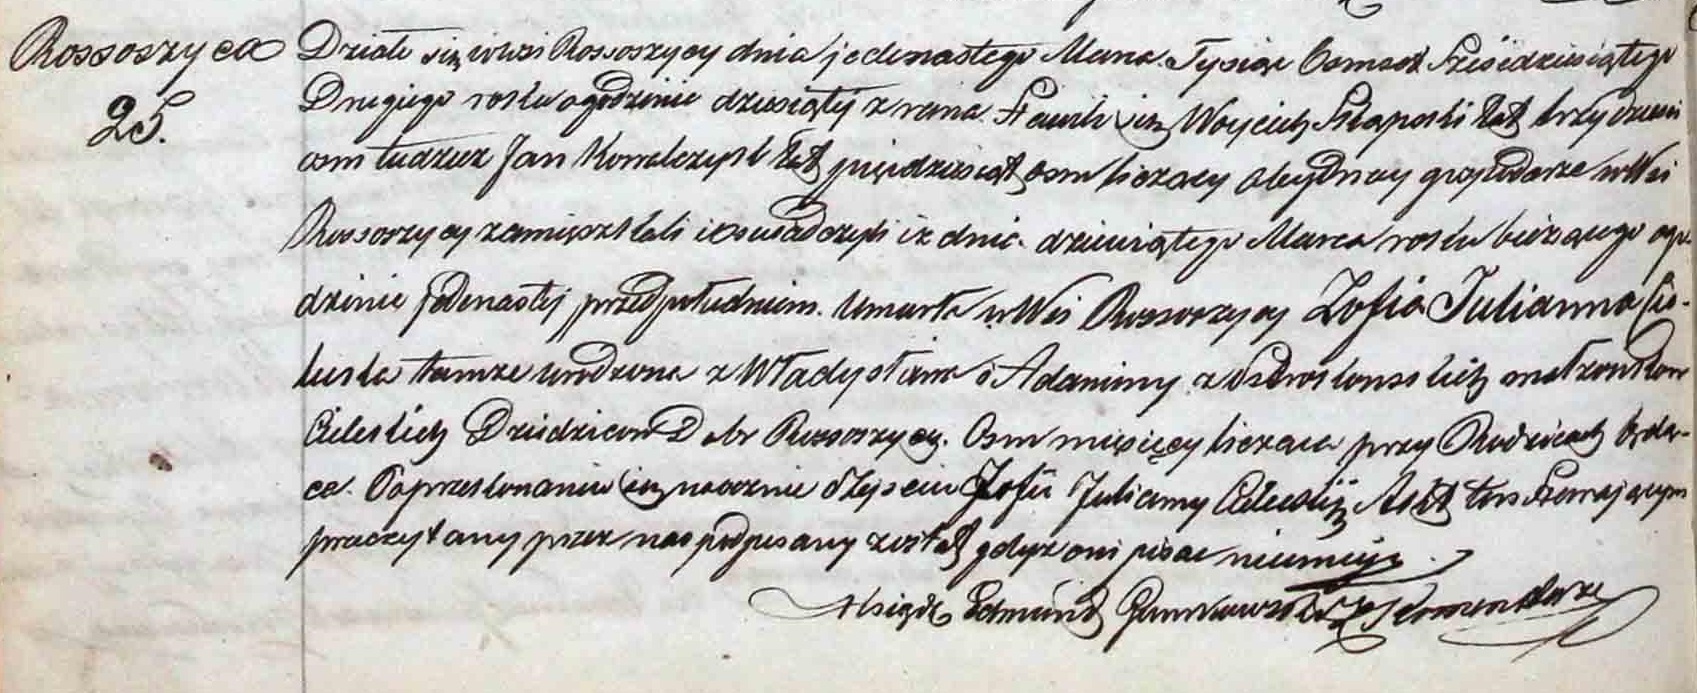 Rossoszyca
25.
Działo się w Wsi Rossoszycy dnia jedenastego Marca Tysiąc Ośmset Sześćdziesiątego
Drugiego roku o godzinie dziesiątej z rana. Stawili się Wojciech lat trzydzieści
osm tudzież Jan Kowalczyk lat pięćdziesiąt osm liczący obydway gospodarze w Wsi
Rossoszycy zamięszkali i oświadczyli iż dnia dziewiątego Marca roku bieżącego ogo-
dzinie jedenastej przed południem. Umarła w Wsi Rossoszycy Zofia Julianna Cie-
lecka tamże urodzona z Władysława i Adaminy z małżonków
Cieleckich Dziedziców Dóbr Rossoszycy. Osm miesięcy licząca przy Rodzicach będą-
ca. Po przekonaniu się naocznie o zejściu Zofii Julianny Cieleckiej Akt ten Stawającym
przeczytany przez nas podpisany został gdyż oni pisać nieumieją.
Ksiądz Edmund Komendarz